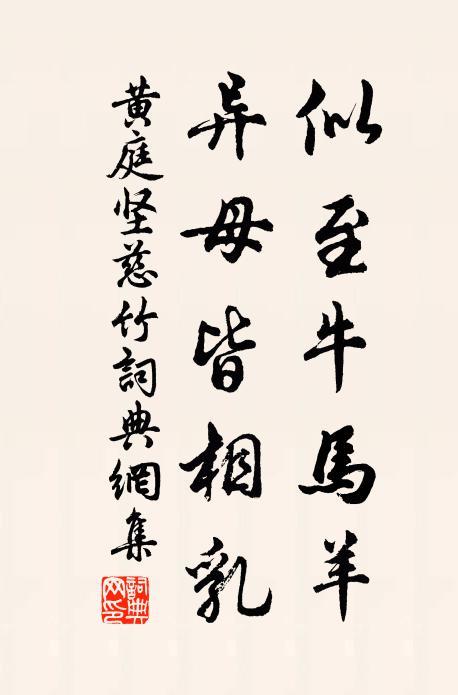 似至牛馬羊
异母皆相乳
黄庭坚慈竹詞典網集
詞典网印